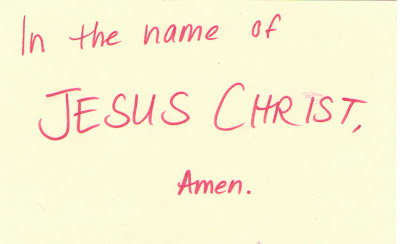 In the name of
JESUS CHRIST,
Amen.